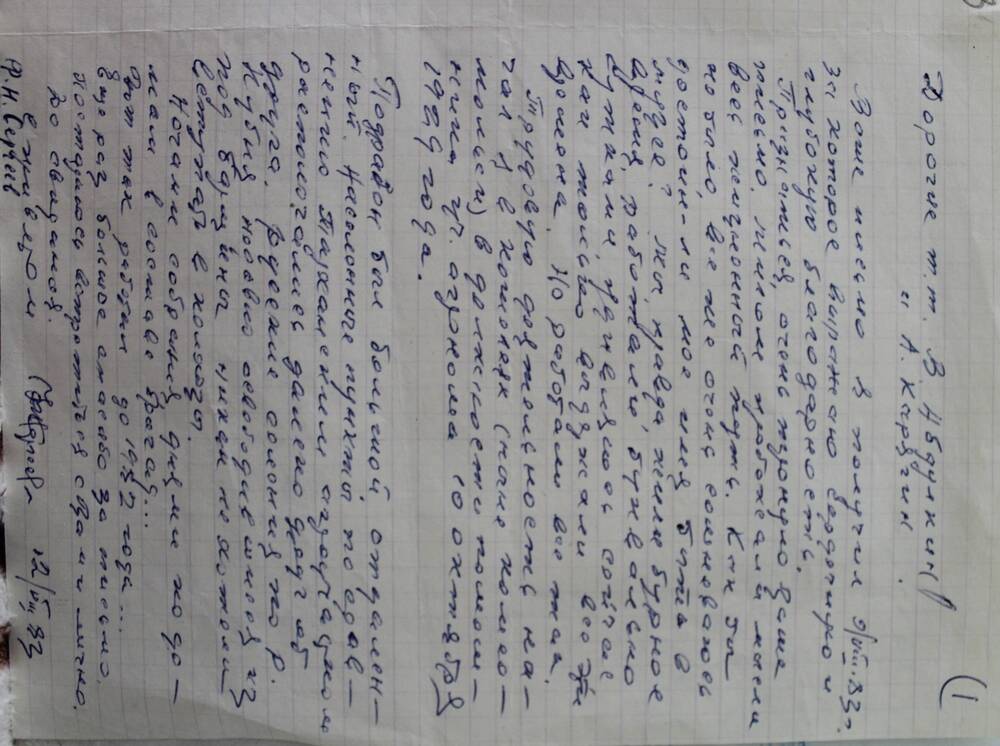 (1
Дорогие т.т. В. Абдулкин!
и А. Карягин.
Ваше письмо я получил 9/VIII-83г.
за которое выражаю сердечную и
глубокую благодарность.
Признаться, очень тронуло ваше
письмо. Мигом пробежали мысли
весь жизненный путь. Как бы
не было, все же очень сомневаюсь
достоин-ли мое имя быть в
музее? Мы, правда, жили бурное
время, работали буквально
сутками, удивляюсь сейчас
как только выдержали все эти
времена. Но работали все так.
Трудовую деятельность на-
чал я в Кошелеях (ныне Комсо-
мольск) в должности помощ-
ника уч. агронома 10 октября
1929 года.
Подрайон был большой, отдален-
ный. Населенные пункты по срав-
нению Тарханским агроучастком
располагались далеко друг от
друга. Русские селения по р.
Кубня недавно освободившиеся из
под барщины никак не хотели
вступать в колхозы.
Ночами собрания, днями по до-
мам в составе бригад...
Вот так работал до 1932 года...
Еще раз большое спасибо за письмо.
Постараюсь встретиться с Вами лично.
До свидания.
с приветом 12/VIII 83
Ф.Н. Сергеев